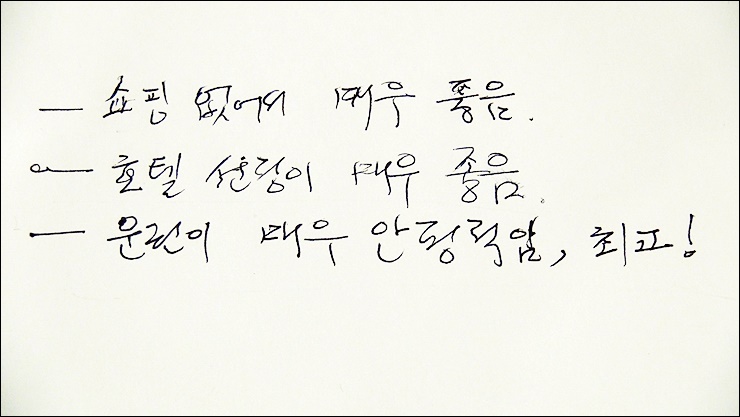 — 쇼핑 없어서 매우 좋음.
— 호텔 선정이 매우 좋음.
— 운전이 매우 안정적임, 최고!